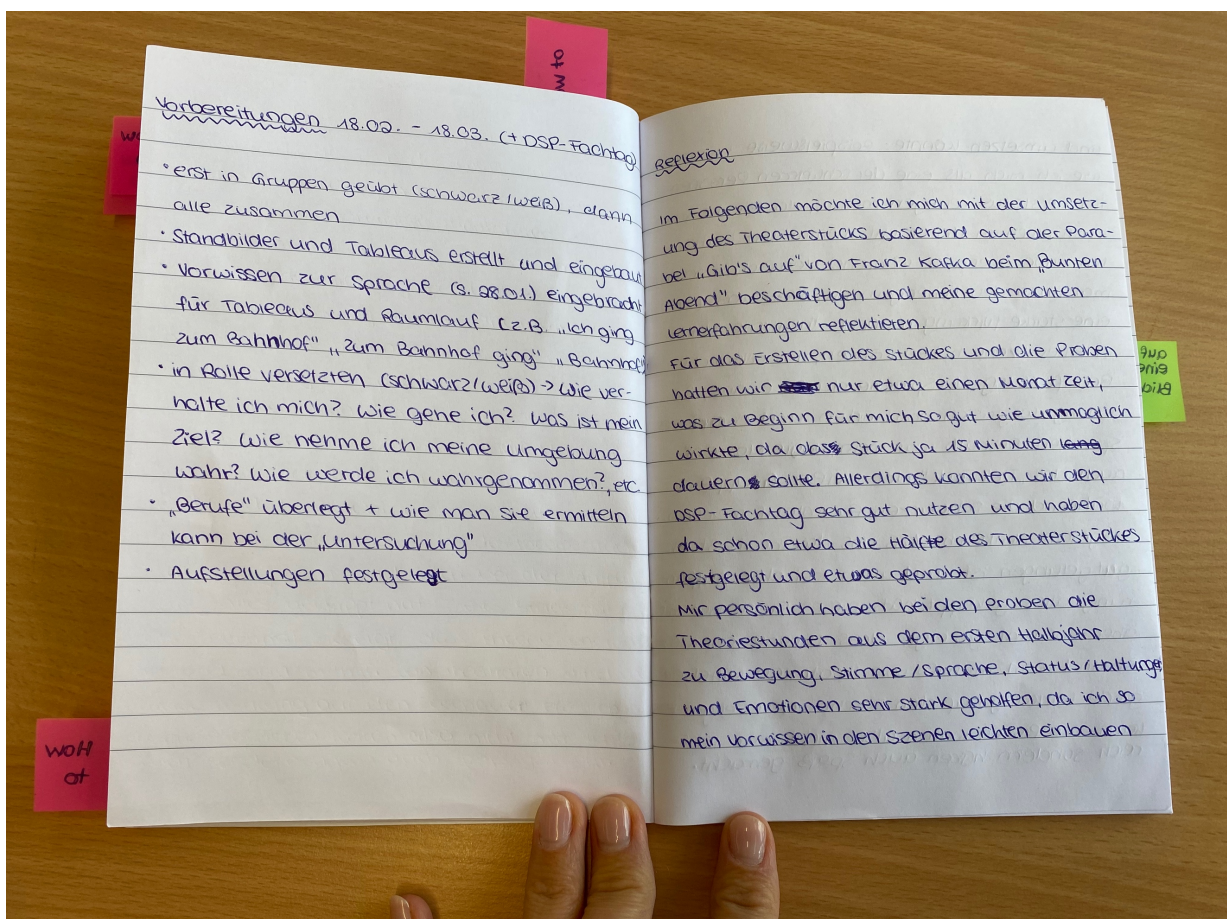 Vorbereitungen 18.02. - 18.03. (+ DSP-Fachtag)
• erst in Gruppen geübt (schwarz/weiß), dann
alle zusammen
• Standbilder und Tableaus erstellt und eingebaut
• Vorwissen zur Sprache (s. 28.01.) eingebracht
für Tableaus und Raumlauf (z.B. „Ich ging
zum Bahnhof" „zum Bahnhof ging" „Bahnhof"
• in Rolle versetzten (schwarz/weiß) -> wie ver-
halte ich mich? wie gehe ich? was ist mein
Ziel? wie nehme ich meine Umgebung
wahr? wie werde ich wahrgenommen?, etc.
• „Berufe" überlegt + wie man sie ermitteln
kann bei der „Untersuchung"
• Aufstellungen festgelegt
Reflexion
Im Folgenden möchte ich mich mit der Umsetz-
ung des Theaterstücks basierend auf der Para-
bel „Gib's auf" von Franz Kafka beim „Bunten
Abend" beschäftigen und meine gemachten
Lernerfahrungen reflektieren.
Für das Erstellen des Stückes und die Proben
hatten wir nur etwa einen Monat Zeit,
was zu Beginn für mich so gut wie unmöglich
wirkte, da das Stück ja 15 Minuten lang
dauern sollte. Allerdings konnten wir den
DSP-Fachtag sehr gut nutzen und haben
da schon etwa die Hälfte des Theaterstückes
festgelegt und etwas geprobt.
Mir persönlich haben bei den Proben die
Theoriestunden aus dem ersten Halbjahr
zu Bewegung, Stimme/Sprache, Status/Haltungen
und Emotionen sehr stark geholfen, da ich so
mein Vorwissen in den Szenen leichten einbauen
How
to
w to